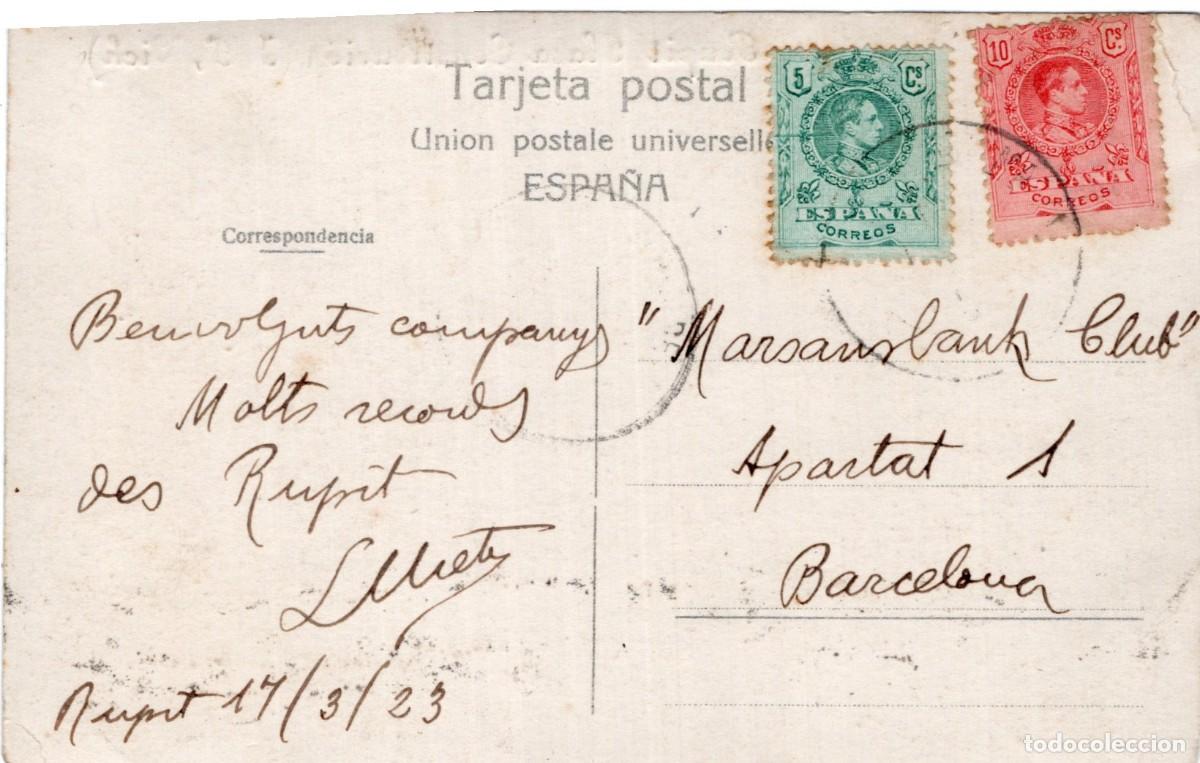 Tarjeta postal
Union postale universelle
ESPAÑA
5 Cs
ESPAÑA
CORREOS
10 Cs.
ESPAÑA
CORREOS
Correspondencia
Benvolguts companys
Molts records
des Rupit
Rupit 17/3/23
"Marsansbank Club"
Apartat 1
Barcelona
todocoleccion